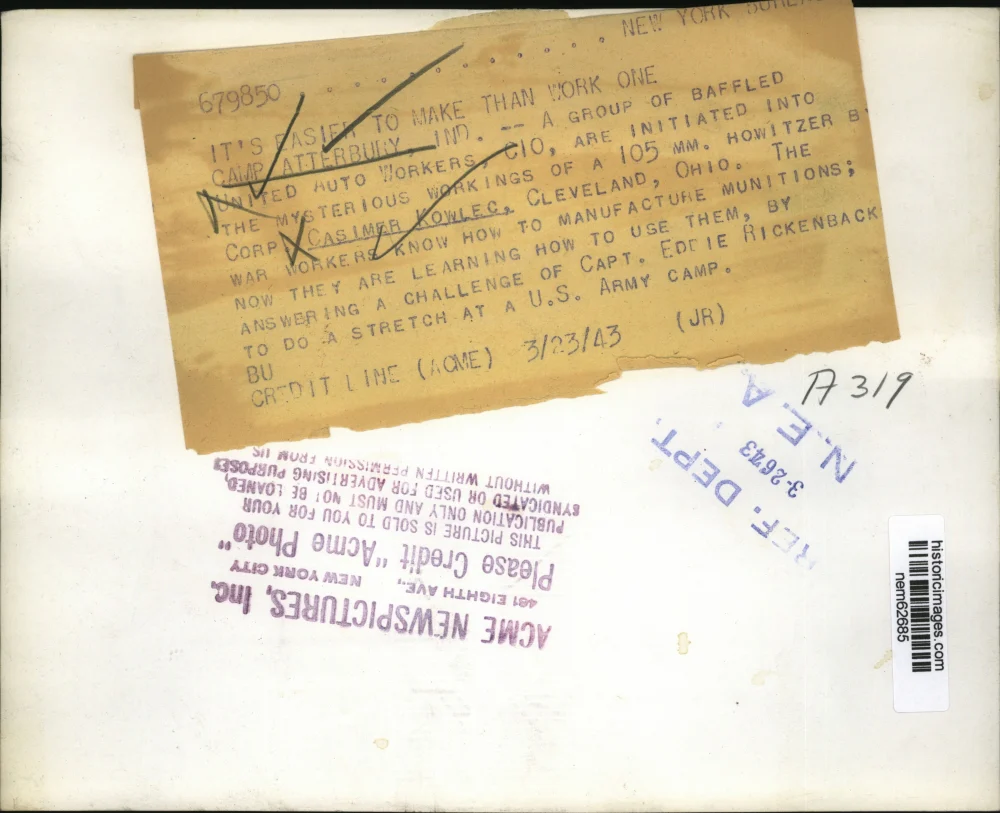 679850 . . . . . . . . . . NEW YORK
IT'S EASIER TO MAKE THAN WORK ONE
CAMP ATTERBURY, IND. -- A GROUP OF BAFFLED
UNITED AUTO WORKERS, CIO, ARE INITIATED INTO
THE MYSTERIOUS WORKINGS OF A 105 MM. HOWITZER B
CORP. CASIMER KOWLEC, CLEVELAND, OHIO. THE
WAR WORKERS KNOW HOW TO MANUFACTURE MUNITIONS;
NOW THEY ARE LEARNING HOW TO USE THEM, BY
ANSWERING A CHALLENGE OF CAPT. EDDIE RICKENBACK
TO DO A STRETCH AT A U.S. ARMY CAMP.
BU
CREDIT LINE (ACME) 3/23/43 (JR)
A 319
REF. DEPT.
3-26-43
N. E. A.
ACME NEWSPICTURES, Inc.
461 EIGHTH AVE., NEW YORK CITY
Please Credit "Acme Photo"
THIS PICTURE IS SOLD TO YOU FOR YOUR
PUBLICATION ONLY AND MUST NOT BE LOANED,
SYNDICATED OR USED FOR ADVERTISING PURPOSES
WITHOUT WRITTEN PERMISSION FROM US
historicimages.com
nem62685